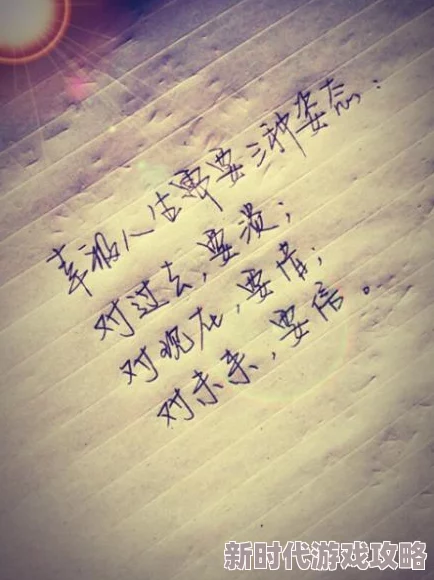 幸福人生需要三种姿态：
对过去，要淡；
对现在，要惜；
对未来，要信。
新时代游戏攻略